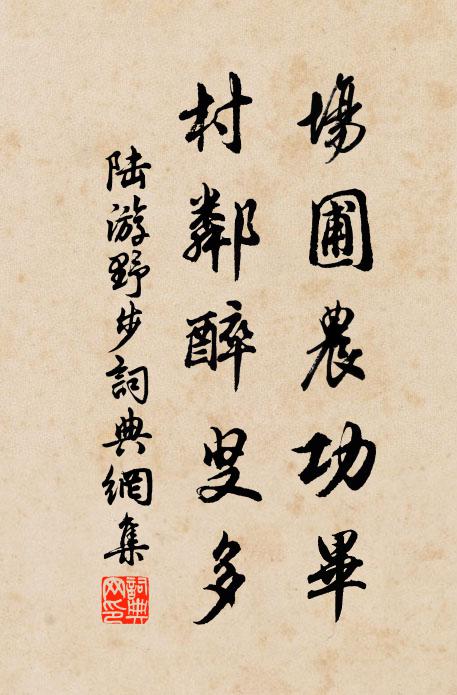 場圃農功畢
村鄰醉叟多
陸游野步詞典網集
詞典
网印